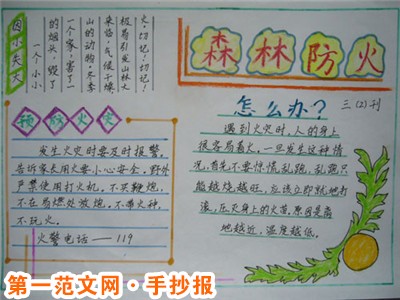 森林防火
三（2）刊
因小失大
一个小小
的烟头，毁了
一个家，害了一
山的动物。冬季
来临，气候干燥
极易引发山林火
火，切记！切记！
预防火灾
发生火灾时要及时报警。
告诉家长用火要小心安全，野外
严禁使用打火机，不买鞭炮，
不在易燃处放炮。不带火种，
不玩火。
火警电话——119
怎么办？
遇到火灾时，人的身上
很容易着火，一旦发生这种情
况，首先不要惊慌乱跑，乱跑只
能越烧越旺，应该立即就地打
滚，压灭身上的火苗。原因是离
地越近，温度越低。
第一范文网·手抄报